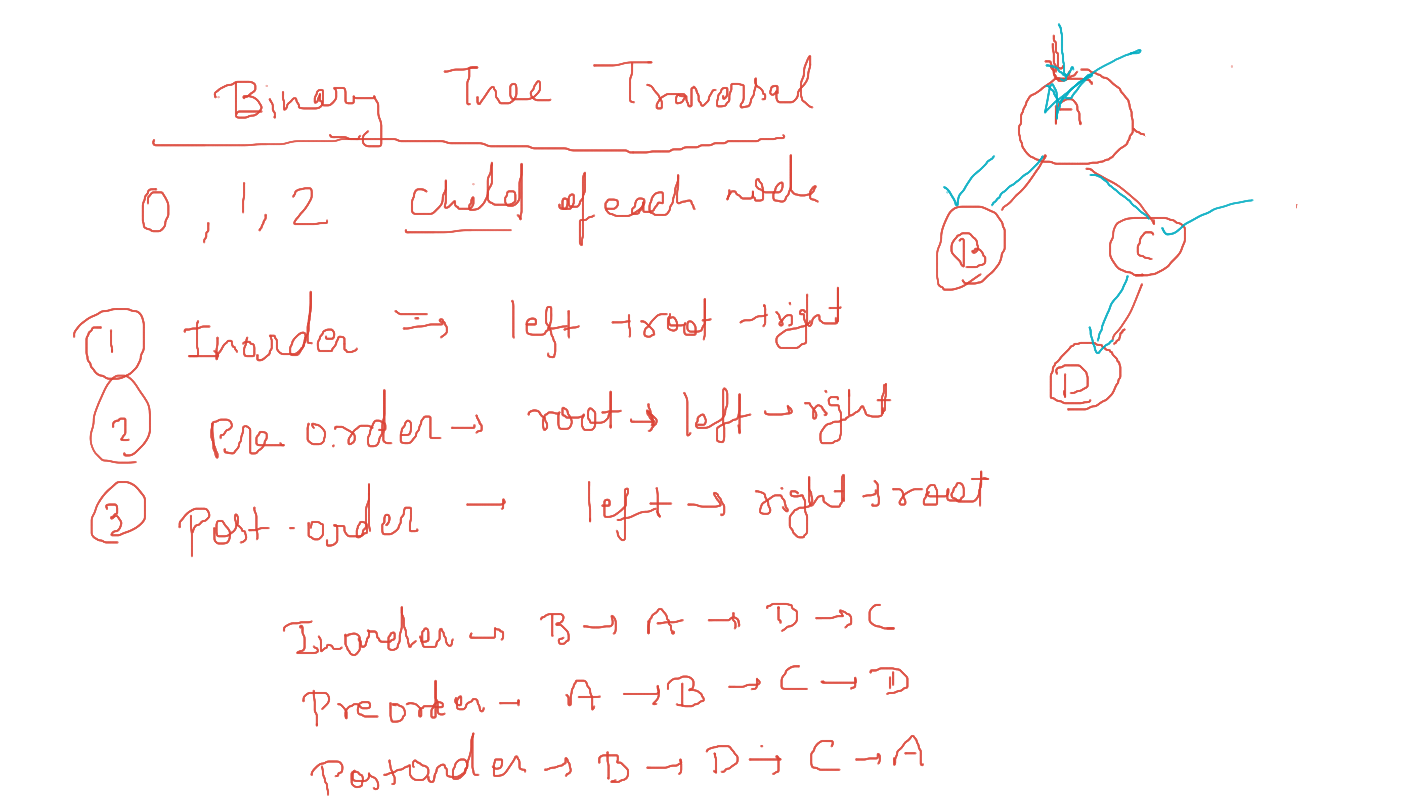 Binary Tree Traversal
0, 1, 2 child of each node
A
B
C
D
1 Inorder => left → root → right
2 Pre order → root → left → right
3 Post-order → left → right → root
Inorder → B → A → D → C
Preorder → A → B → C → D
Postorder → B → D → C → A